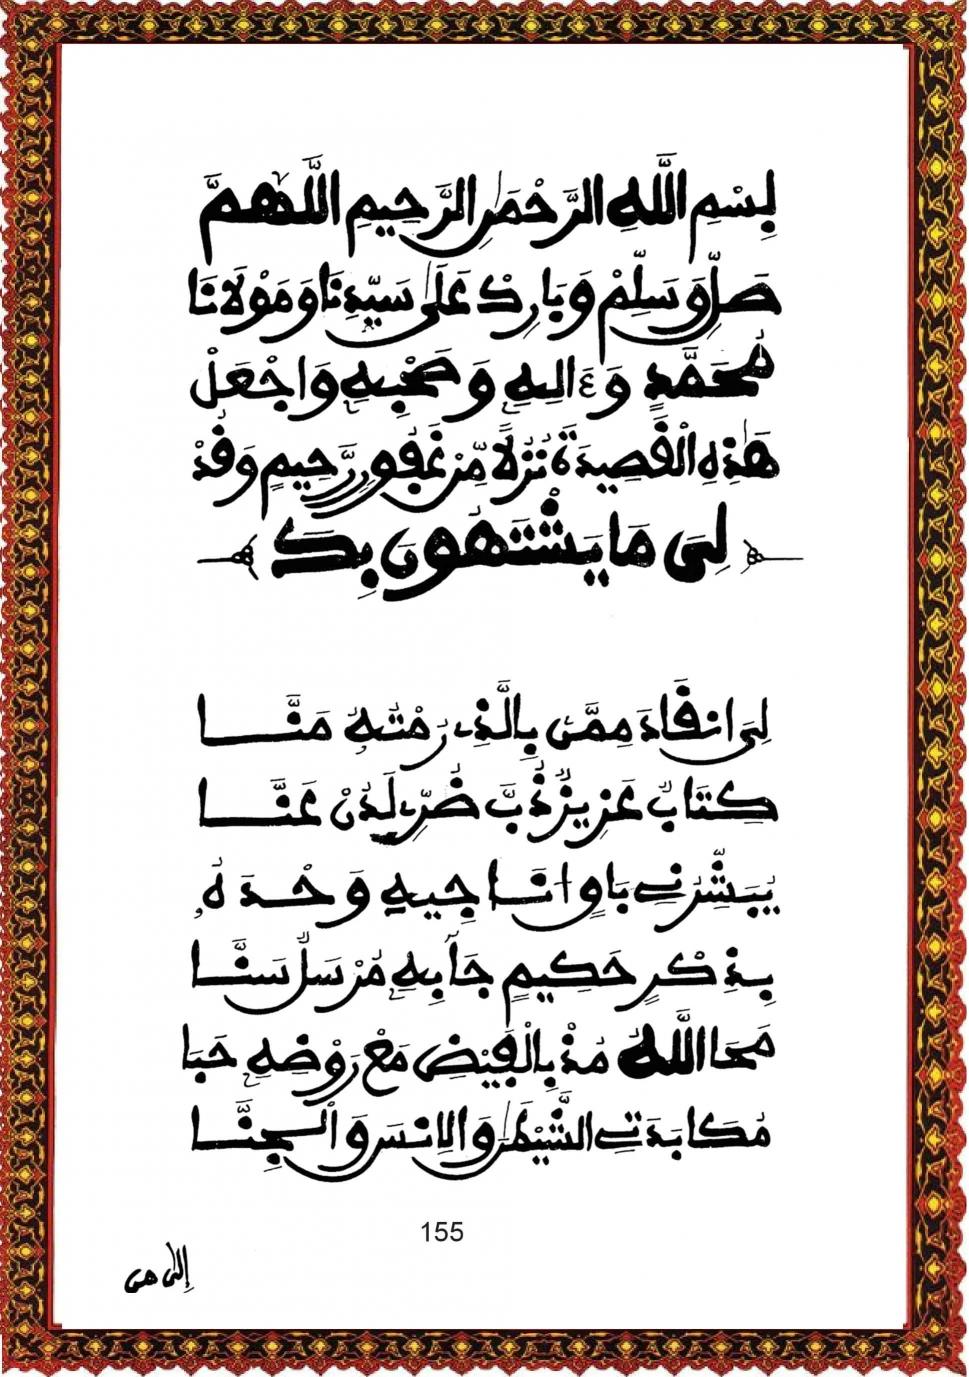 بِسْمِ اللَّهِ الرَّحْمَٰنِ الرَّحِيمِ اللَّهُمَّ
صَلِّ وَسَلِّمْ وَبَارِكْ عَلَىٰ سَيِّدِنَا وَمَوْلَانَا
مُحَمَّدٍ وَءَالِهِ وَصَحْبِهِ وَاجْعَلْ
هَٰذِهِ الْقَصِيدَةَ نُزُلًا مِّنْ غَفُورٍ رَّحِيمٍ وَقُدْ
لِى مَا يَشْتَهُونَ بِكَ
لِىَ انقَادَ مِمَّن بِالَّذِى رُمْتُهُ مَنَّا
كِتَابٌ عَزِيزٌ ذَبَّ ضُرِّى لَدُنْ عَنَّا
يُبَشِّرُنِى بَاقٍ أُنَاجِيهِ وَحْدَهُ
بِذِكْرٍ حَكِيمٍ جَآ بِهِ مُرْسَلٌ سَنَّا
مَحَا اللَّهُ مُذْ بِالْفَيْضِ مَعْ رَوْضِهِ حَبَا
مُكَابَدَتِى الشَّيْطَٰنَ وَالإِنسَ وَالْجِنَّا
155
إِلَىٰ هـى